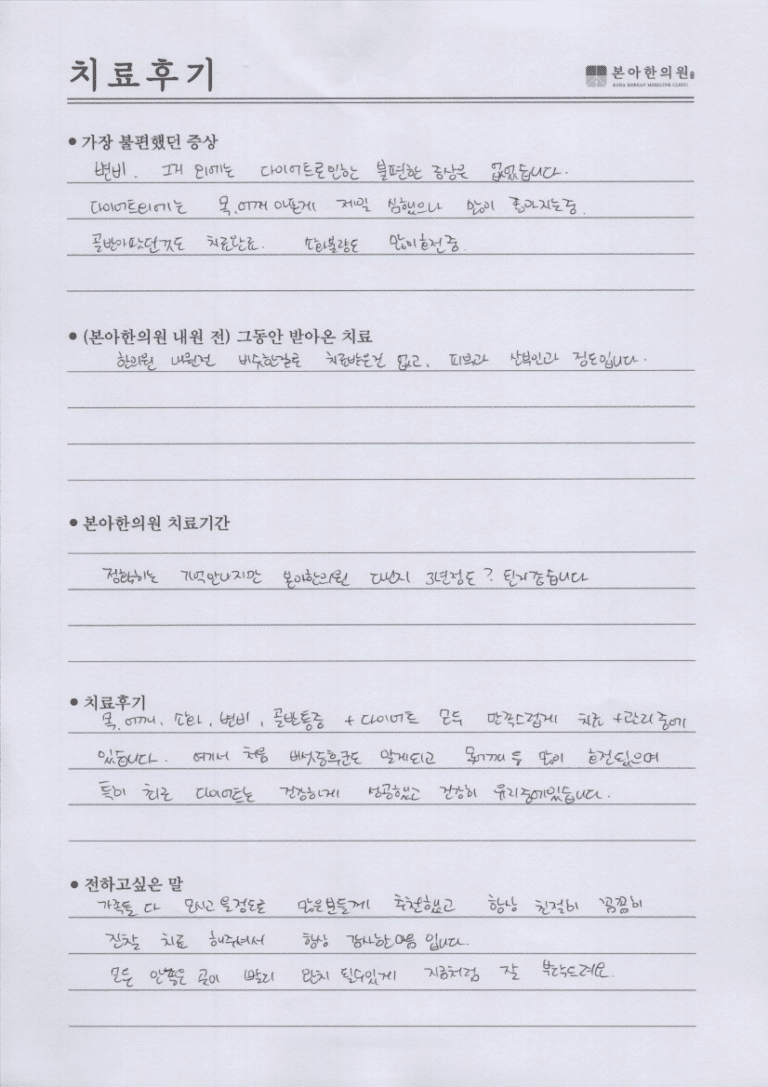 치료후기
본아한의원
BONA KOREAN MEDICINE CLINIC
• 가장 불편했던 증상
변비. 그거 외에는 다이어트로인한 불편한 증상은 없었습니다.
다이어트외에는 목, 어깨 아픈게 제일 심했으나 많이 좋아지는중.
골반아팠던것도 치료완료. 소화불량도 많이호전중.
• (본아한의원 내원 전) 그동안 받아온 치료
한의원 내원전 비슷한걸로 치료받은건 없고, 피부과 산부인과 정도입니다.
• 본아한의원 치료기간
정확히는 기억안나지만 본아한의원 다닌지 3년정도? 된거같습니다
• 치료후기
목, 어깨, 소화, 변비, 골반통증 + 다이어트 모두 만족스럽게 치료 + 관리중에
있습니다. 여기서 처음 버섯증후군도 알게되고 목어깨 두 많이 호전됐으며
특히 최근 다이어트는 건강하게 성공했고 건강히 유지중에있습니다.
• 전하고싶은 말
가족들 다 모시고 올정도로 많은분들께 추천했고 항상 친절히 꼼꼼히
진찰 치료 해주셔서 항상 감사한마음 입니다.
모든 안좋은 곳이 빨리 완치 될수있게 지금처럼 잘 부탁드려요.